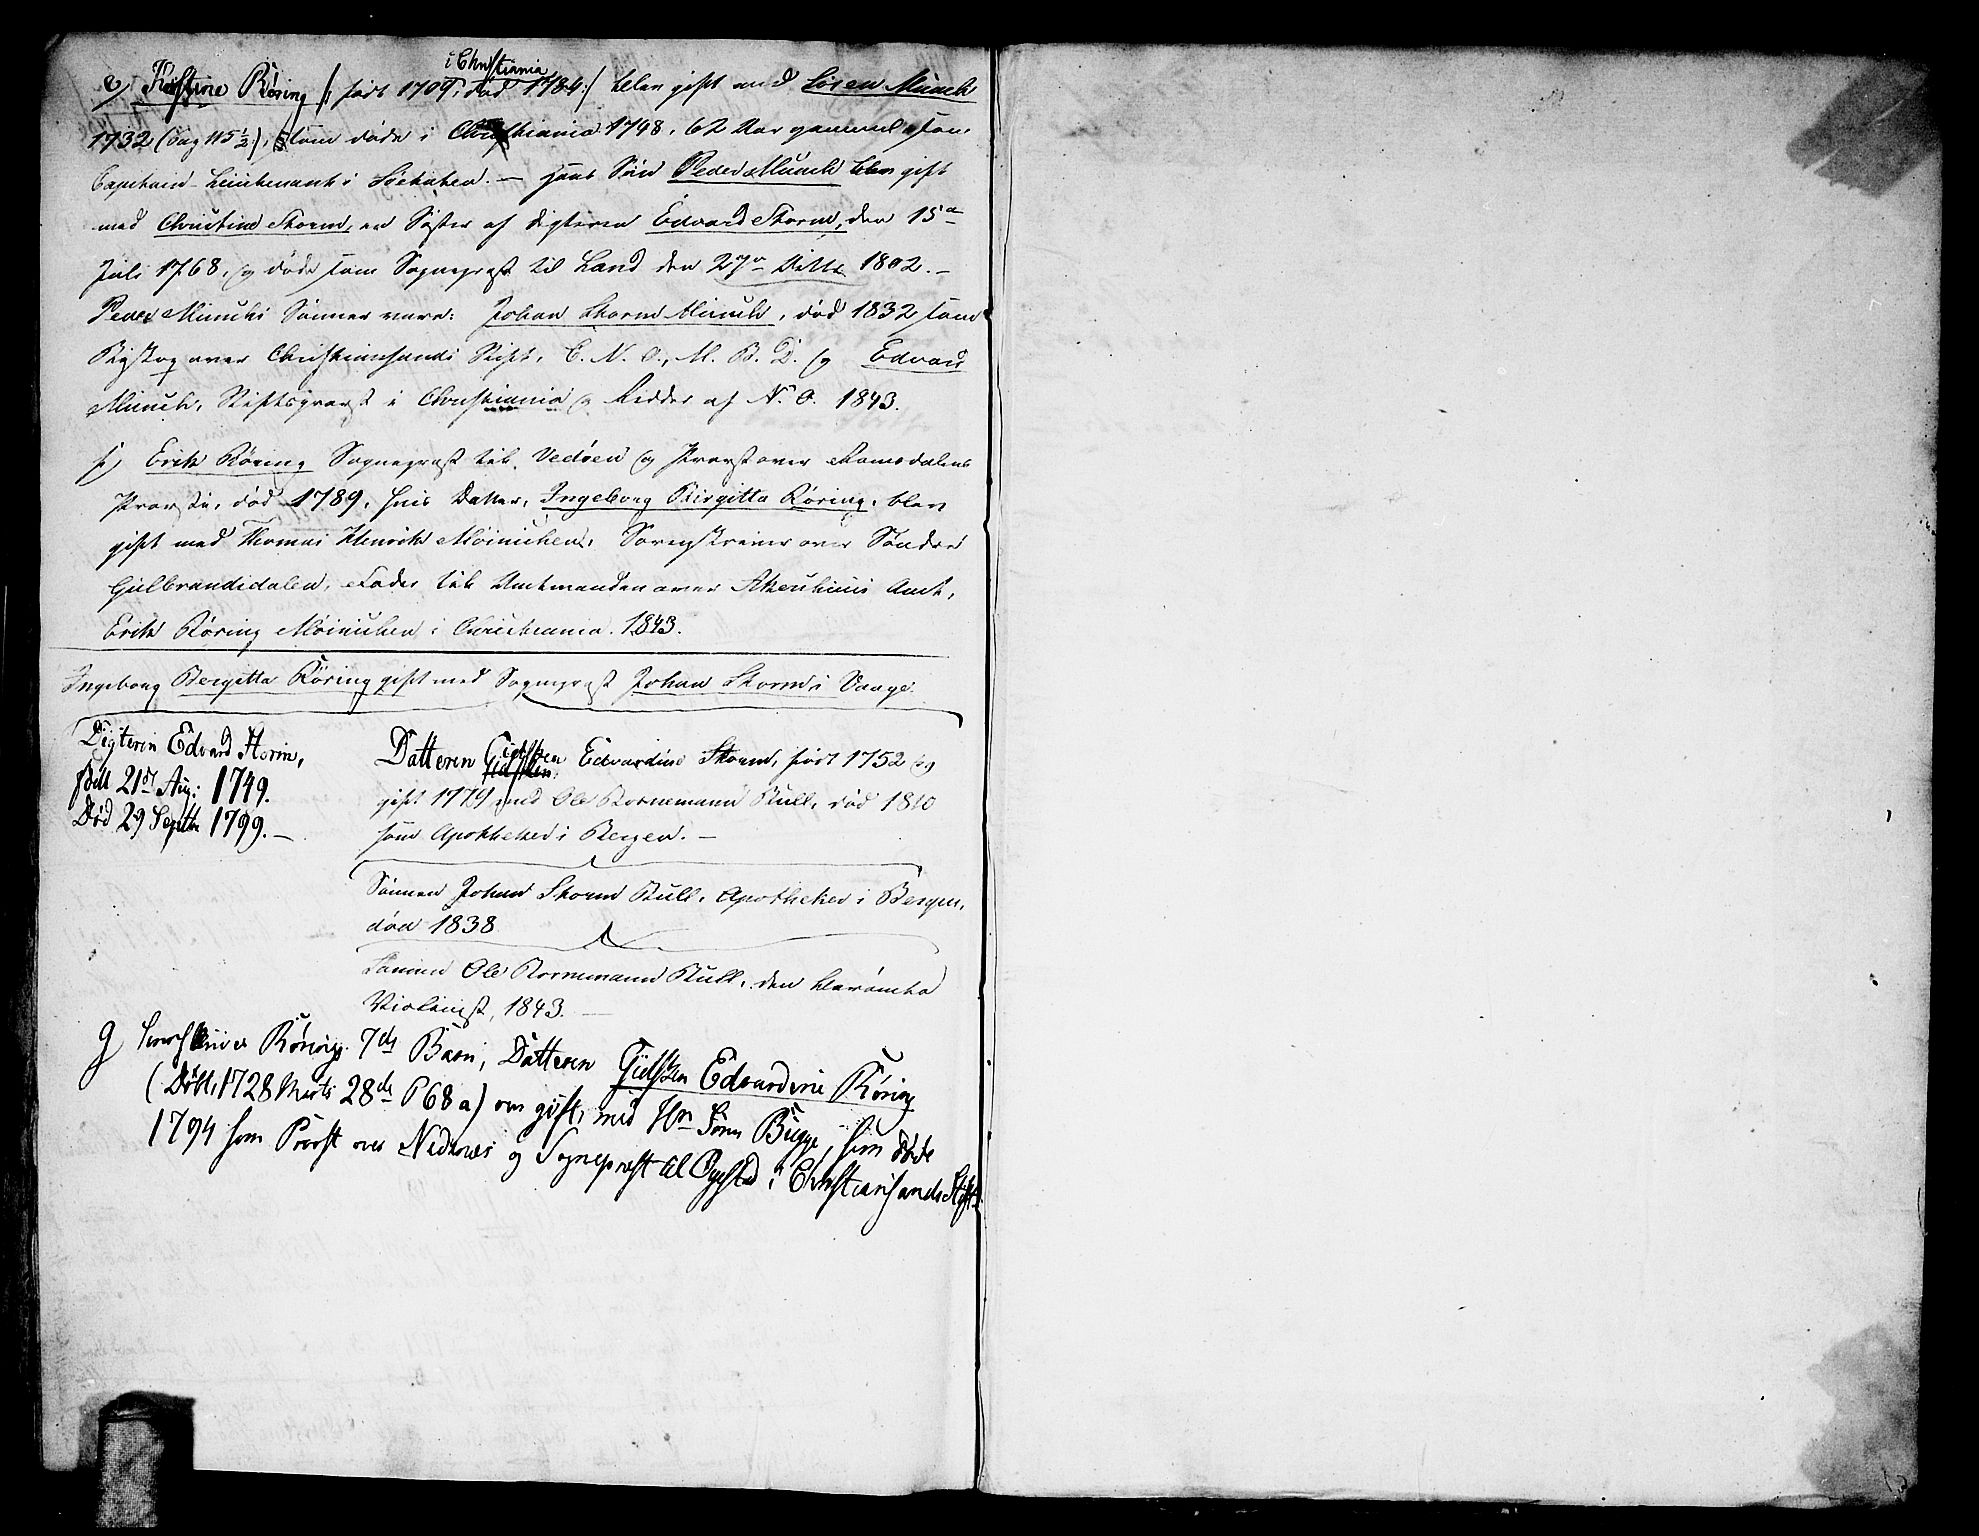 i Christiania
e) Kirstine Röring /: födt 1709, död 1784:/ blev gift med Sören Munch
1732 (Pag 115½), som döde i Christiania 1748, 62 Aar gammel som
Capitain-Lieutenant i Söetaten. — Hans Sön Peder Munch blev gift
med Christine Storm, en Söster af Digteren Edvard Storm, den 15de
Juli 1768, og döde som Sognepræst til Land den 27de 1802. —
Peder Munchs Sönner vare: Johan Storm Munch, död 1832 som
Biskop over Christiansands Stift, C. N. O., M. B. D. og Edvard
Munch, Stiftsprovst i Christiania og Ridder af N. O. 1843.
f) Erik Röring Sognepræst til Vedöen og Provst over Romsdalens
Provstie, död 1789, hvis Datter, Ingeborg Birgitta Röring, blev
gift med Thomas Henrik Möinichen, Sorenskriver over Söndre
Gulbrandsdalen, Fader til Amtmanden over Akershuus Amt,
Erik Röring Möinichen i Christiania. 1843.
Ingeborg Bergitta Röring gift med Sognepræst Johan Storm i Vaage.
Digteren Edvard Storm,
födt 21de Aug: 1749.
Död 29 Septbr 1799. —
Datteren Gidsken Edvardine Storm, födt 1752 og
gift 1779 med Ole Bornemann Bull, död 1810
som Apotheker i Bergen. —
Sönnen Johan Storm Bull, Apotheker i Bergen,
död 1838
Sönnen Ole Bornemann Bull, den berömte
Violinist, 1843. —
g Sorenskriver Rörings 7de Barn, Datteren Gidsken Edvardine Röring
(Döbt 1728 Marti 28de P 68 a) var gift med Hr. Sören Bugge, som döde
1794 som Provst over Nedenæs og Sognepræst til Öyestad i Christiansands Stift.